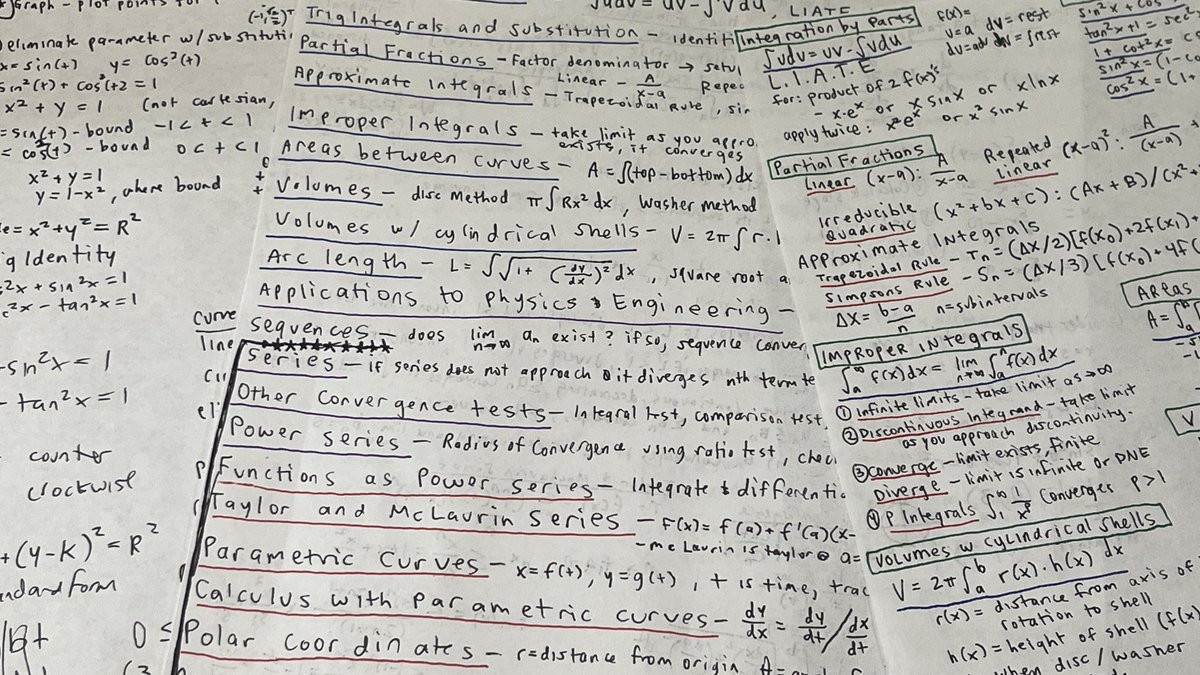 Graph - plot points for
eliminate parameter w/ substituti
x = sin(t) y = cos²(t)
sin²(t) + cos²(t) = 1
x² + y = 1 (not cartesian,
= sin(t) - bound -1 < t < 1
= cos²(t) - bound 0 < t < 1
x² + y = 1
y = 1-x², where bound
= x² + y² = R²
Identity
²x + sin²x = 1
c²x - tan²x = 1
-sin²x = 1
- tan²x = 1
counter
clockwise
+ (y-k)² = R²
ndard form
0 ≤
curve
line
∫udv = uv - ∫vdu, LIATE
Trig Integrals and substitution - identiti
Partial Fractions - Factor denominator → setu
Linear - A/x-a Repec
Approximate Integrals - Trapezoidal Rule, sin
Improper Integrals - take limit as you appro
exists, it converges
Areas between curves - A = ∫(top-bottom) dx
Volumes - disc method π∫Rx² dx, washer method
Volumes w/ cylindrical shells - V = 2π∫r.
Arc length - L = ∫√1+(dy/dx)² dx, square root a
Applications to physics & Engineering -
Sequences - does lim n→∞ an exist? if so, sequence conver
Series - if series does not approach 0 it diverges nth term te
Other convergence tests - Integral test, comparison test
Power series - Radius of Convergence using ratio test, chec
Functions as Power series - Integrate & differentic
Taylor and McLaurin Series - F(x) = f(a) + f'(a)(x-
- mcLaurin is taylor @ a=
Parametric Curves - x=f(t), y=g(t), t is time, trac
Calculus with parametric curves - dy/dx = dy/dt / dx/dt
Polar Coordinates - r=distance from origin
Integration by Parts
f(x)=
u=a dv=rest
∫udv = uv - ∫vdu
L.I.A.T.E
for: product of 2 f(x)'s
- x·eˣ or x sinx or xlnx
apply twice: x²eˣ or x² sinx
Partial Fractions
Linear (x-a): A/x-a Repeated Linear (x-a)²: A/(x-a) +
Irreducible Quadratic (x²+bx+c): (Ax+B)/(x²+
Approximate Integrals
Trapezoidal Rule - Tn = (Δx/2)[f(x₀)+2f(x₁)
Simpsons Rule - Sn = (Δx/3)[f(x₀)+4f(
Δx = b-a/n n=subintervals
IMPROPER INtegrals
∫a^∞ f(x)dx = lim n→∞ ∫a^n f(x)dx
① Infinite limits - take limit as →∞
② Discontinuous Integrand - take limit
as you approach discontinuity.
③ converge - limit exists, finite
Diverge - limit is infinite or DNE
④ P Integrals ∫1^∞ 1/xᵖ converges p>1
Volumes w cylindrical shells
V = 2π∫a^b r(x)·h(x) dx
r(x) = distance from axis of
rotation to shell
h(x) = height of shell (f(x)
when disc / washer
sin²x + cos
tan²x + 1 = sec²
1 + cot²x = cs
sin²x = (1-co
cos²x = (1+
Areas
A = ∫a^b
V